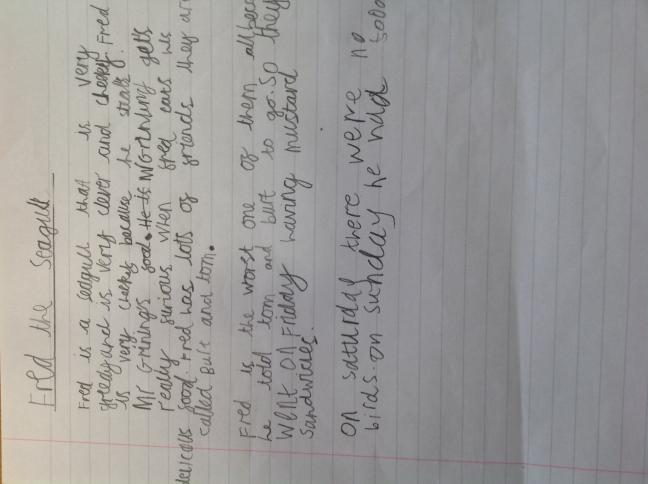 Fred the Seagull
Fred is a seagull that is very
greedy and is very clever and cheeky. Fred
is very cheeky because he steals
Mr Grinings food. He is Mr Grinling gets
really furious when fred eats his
delicous food. Fred has lots of friends they are
called Burt and tom.
Fred is the worst one of them all
he told tom and burt to go. So they
went on Friday having mustard
sandwiches.
on saturday there were no
birds. on sunday he had